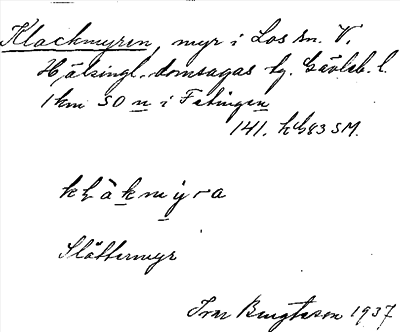 Klackmyren, myr i Los sn. V.
Hälsingl. domsagas tg. Gävleb. l.
1 km SO n i Fatingen
141. hb83 SM.
klàkmýra
Slåttermyr
Ivar Bengtsson 1937